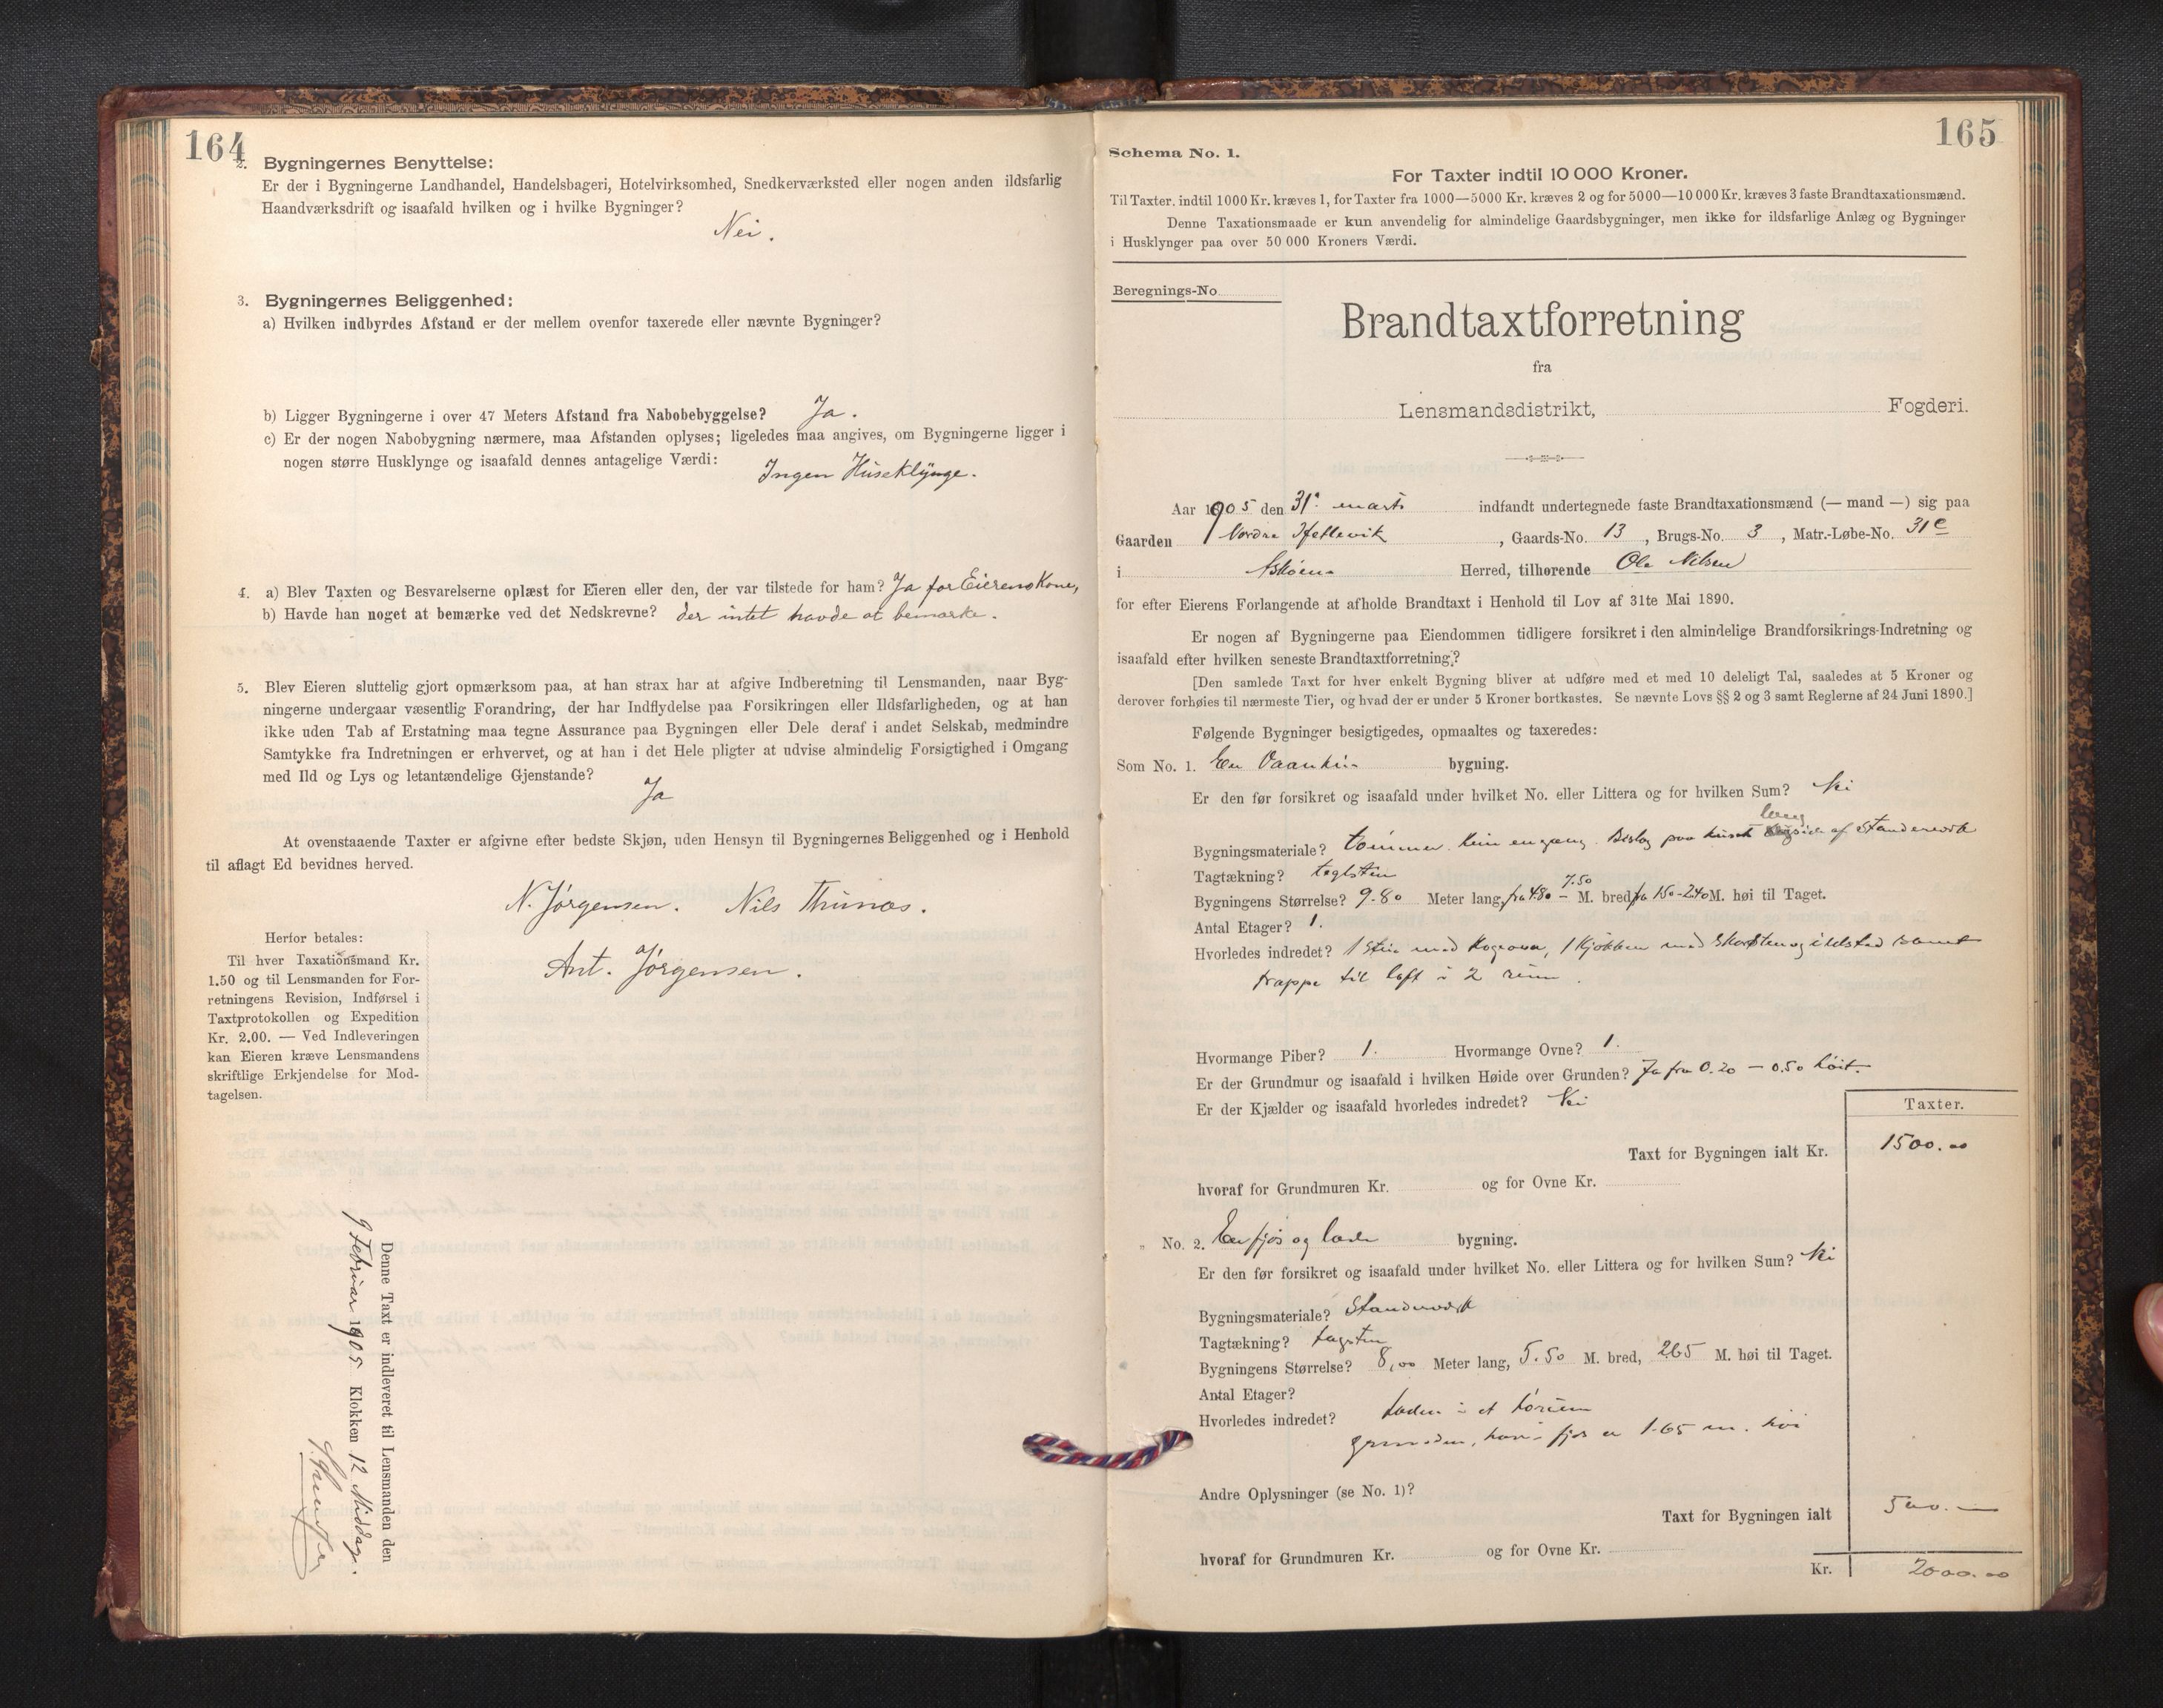 164
2. Bygningernes Benyttelse:
Er der i Bygningerne Landhandel, Handelsbageri, Hotelvirksomhed, Snedkerværksted eller nogen anden ildsfarlig
Haandværksdrift og isaafald hvilken og i hvilke Bygninger?
Nei.
3. Bygningernes Beliggenhed:
a) Hvilken indbyrdes Afstand er der mellem ovenfor taxerede eller nævnte Bygninger?
b) Ligger Bygningerne i over 47 Meters Afstand fra Nabobebyggelse? Ja.
c) Er der nogen Nabobygning nærmere, maa Afstanden oplyses; ligeledes maa angives, om Bygningerne ligger i
nogen større Husklynge og isaafald dennes antagelige Værdi:
Ingen Huseklynge.
4. a) Blev Taxten og Besvarelserne oplæst for Eieren eller den, der var tilstede for ham? Ja for Eierens Kone,
b) Havde han noget at bemærke ved det Nedskrevne? der intet havde at bemærke.
5. Blev Eieren sluttelig gjort opmærksom paa, at han strax har at afgive Indberetning til Lensmanden, naar Byg-
ningerne undergaar væsentlig Forandring, der har Indflydelse paa Forsikringen eller Ildsfarligheden, og at han
ikke uden Tab af Erstatning maa tegne Assurance paa Bygningen eller Dele deraf i andet Selskab, medmindre
Samtykke fra Indretningen er erhvervet, og at han i det Hele pligter at udvise almindelig Forsigtighed i Omgang
med Ild og Lys og letantændelige Gjenstande?
Ja
At ovenstaaende Taxter er afgivne efter bedste Skjøn, uden Hensyn til Bygningernes Beliggenhed og i Henhold
til aflagt Ed bevidnes herved.
N. Jørgensen. Nils Thunæs.
Ant. Jørgensen.
Herfor betales:
Til hver Taxationsmand Kr.
1.50 og til Lensmanden for For-
retningens Revision, Indførsel i
Taxtprotokollen og Expedition
Kr. 2.00. — Ved Indleveringen
kan Eieren kræve Lensmandens
skriftlige Erkjendelse for Mod-
tagelsen.
Denne Taxt er indleveret til Lensmanden den
9 Februar 1905 Klokken 12 Middag.
165
Schema No. 1.
For Taxter indtil 10 000 Kroner.
Til Taxter. indtil 1000 Kr. kræves 1, for Taxter fra 1000—5000 Kr. kræves 2 og for 5000—10 000 Kr. kræves 3 faste Brandtaxationsmænd.
Denne Taxationsmaade er kun anvendelig for almindelige Gaardsbygninger, men ikke for ildsfarlige Anlæg og Bygninger
i Husklynger paa over 50 000 Kroners Værdi.
Beregnings-No.
Brandtaxtforretning
fra
Lensmandsdistrikt, Fogderi.
Aar 1905 den 31. marts indfandt undertegnede faste Brandtaxationsmænd (— mand —) sig paa
Gaarden Nordre Hellevik, Gaards-No. 13, Brugs-No. 3, Matr.-Løbe-No. 31 c
i Askøens Herred, tilhørende Ole Nilsen
for efter Eierens Forlangende at afholde Brandtaxt i Henhold til Lov af 31te Mai 1890.
Er nogen af Bygningerne paa Eiendommen tidligere forsikret i den almindelige Brandforsikrings-Indretning og
isaafald efter hvilken seneste Brandtaxtforretning?
[Den samlede Taxt for hver enkelt Bygning bliver at udføre med et med 10 deleligt Tal, saaledes at 5 Kroner og
derover forhøies til nærmeste Tier, og hvad der er under 5 Kroner bortkastes. Se nævnte Lovs §§ 2 og 3 samt Reglerne af 24 Juni 1890.]
Følgende Bygninger besigtigedes, opmaaltes og taxeredes:
Som No. 1. En Vaanhus bygning.
Er den før forsikret og isaafald under hvilket No. eller Littera og for hvilken Sum? Nei
Bygningsmateriale? tømmer. Bislag paa husets langside af Standerverk
Tagtækning? taglsten
Bygningens Størrelse? 9.80 Meter lang, fra 4.80 – 7.50 M. bred, fra 1.50-2.40 M. høi til Taget.
Antal Etager? 1.
Hvorledes indredet? 1 Stue med Kogeovn, 1 Kjøkken med Skorsten og ildsted samt
trappe til loft i 2 rum.
Hvormange Piber? 1. Hvormange Ovne? 1.
Er der Grundmur og isaafald i hvilken Høide over Grunden? Ja fra 0.20 – 0.50 høit.
Er der Kjælder og isaafald hvorledes indredet? Nei
Taxter.
Taxt for Bygningen ialt Kr. 1500.00
hvoraf for Grundmuren Kr. og for Ovne Kr.
„ No. 2. En fjøs og lade bygning.
Er den før forsikret og isaafald under hvilket No. eller Littera og for hvilken Sum? Nei
Bygningsmateriale? Standerverk
Tagtækning? tagsten
Bygningens Størrelse? 8,00 Meter lang, 5.50 M. bred, 265 M. høi til Taget.
Antal Etager?
Hvorledes indredet? Laden i et
fjøs er 1.65 m. høi
Andre Oplysninger (se No. 1)?
Taxt for Bygningen ialt 500.—
hvoraf for Grundmuren Kr. og for Ovne Kr.
Kr. 2000.00